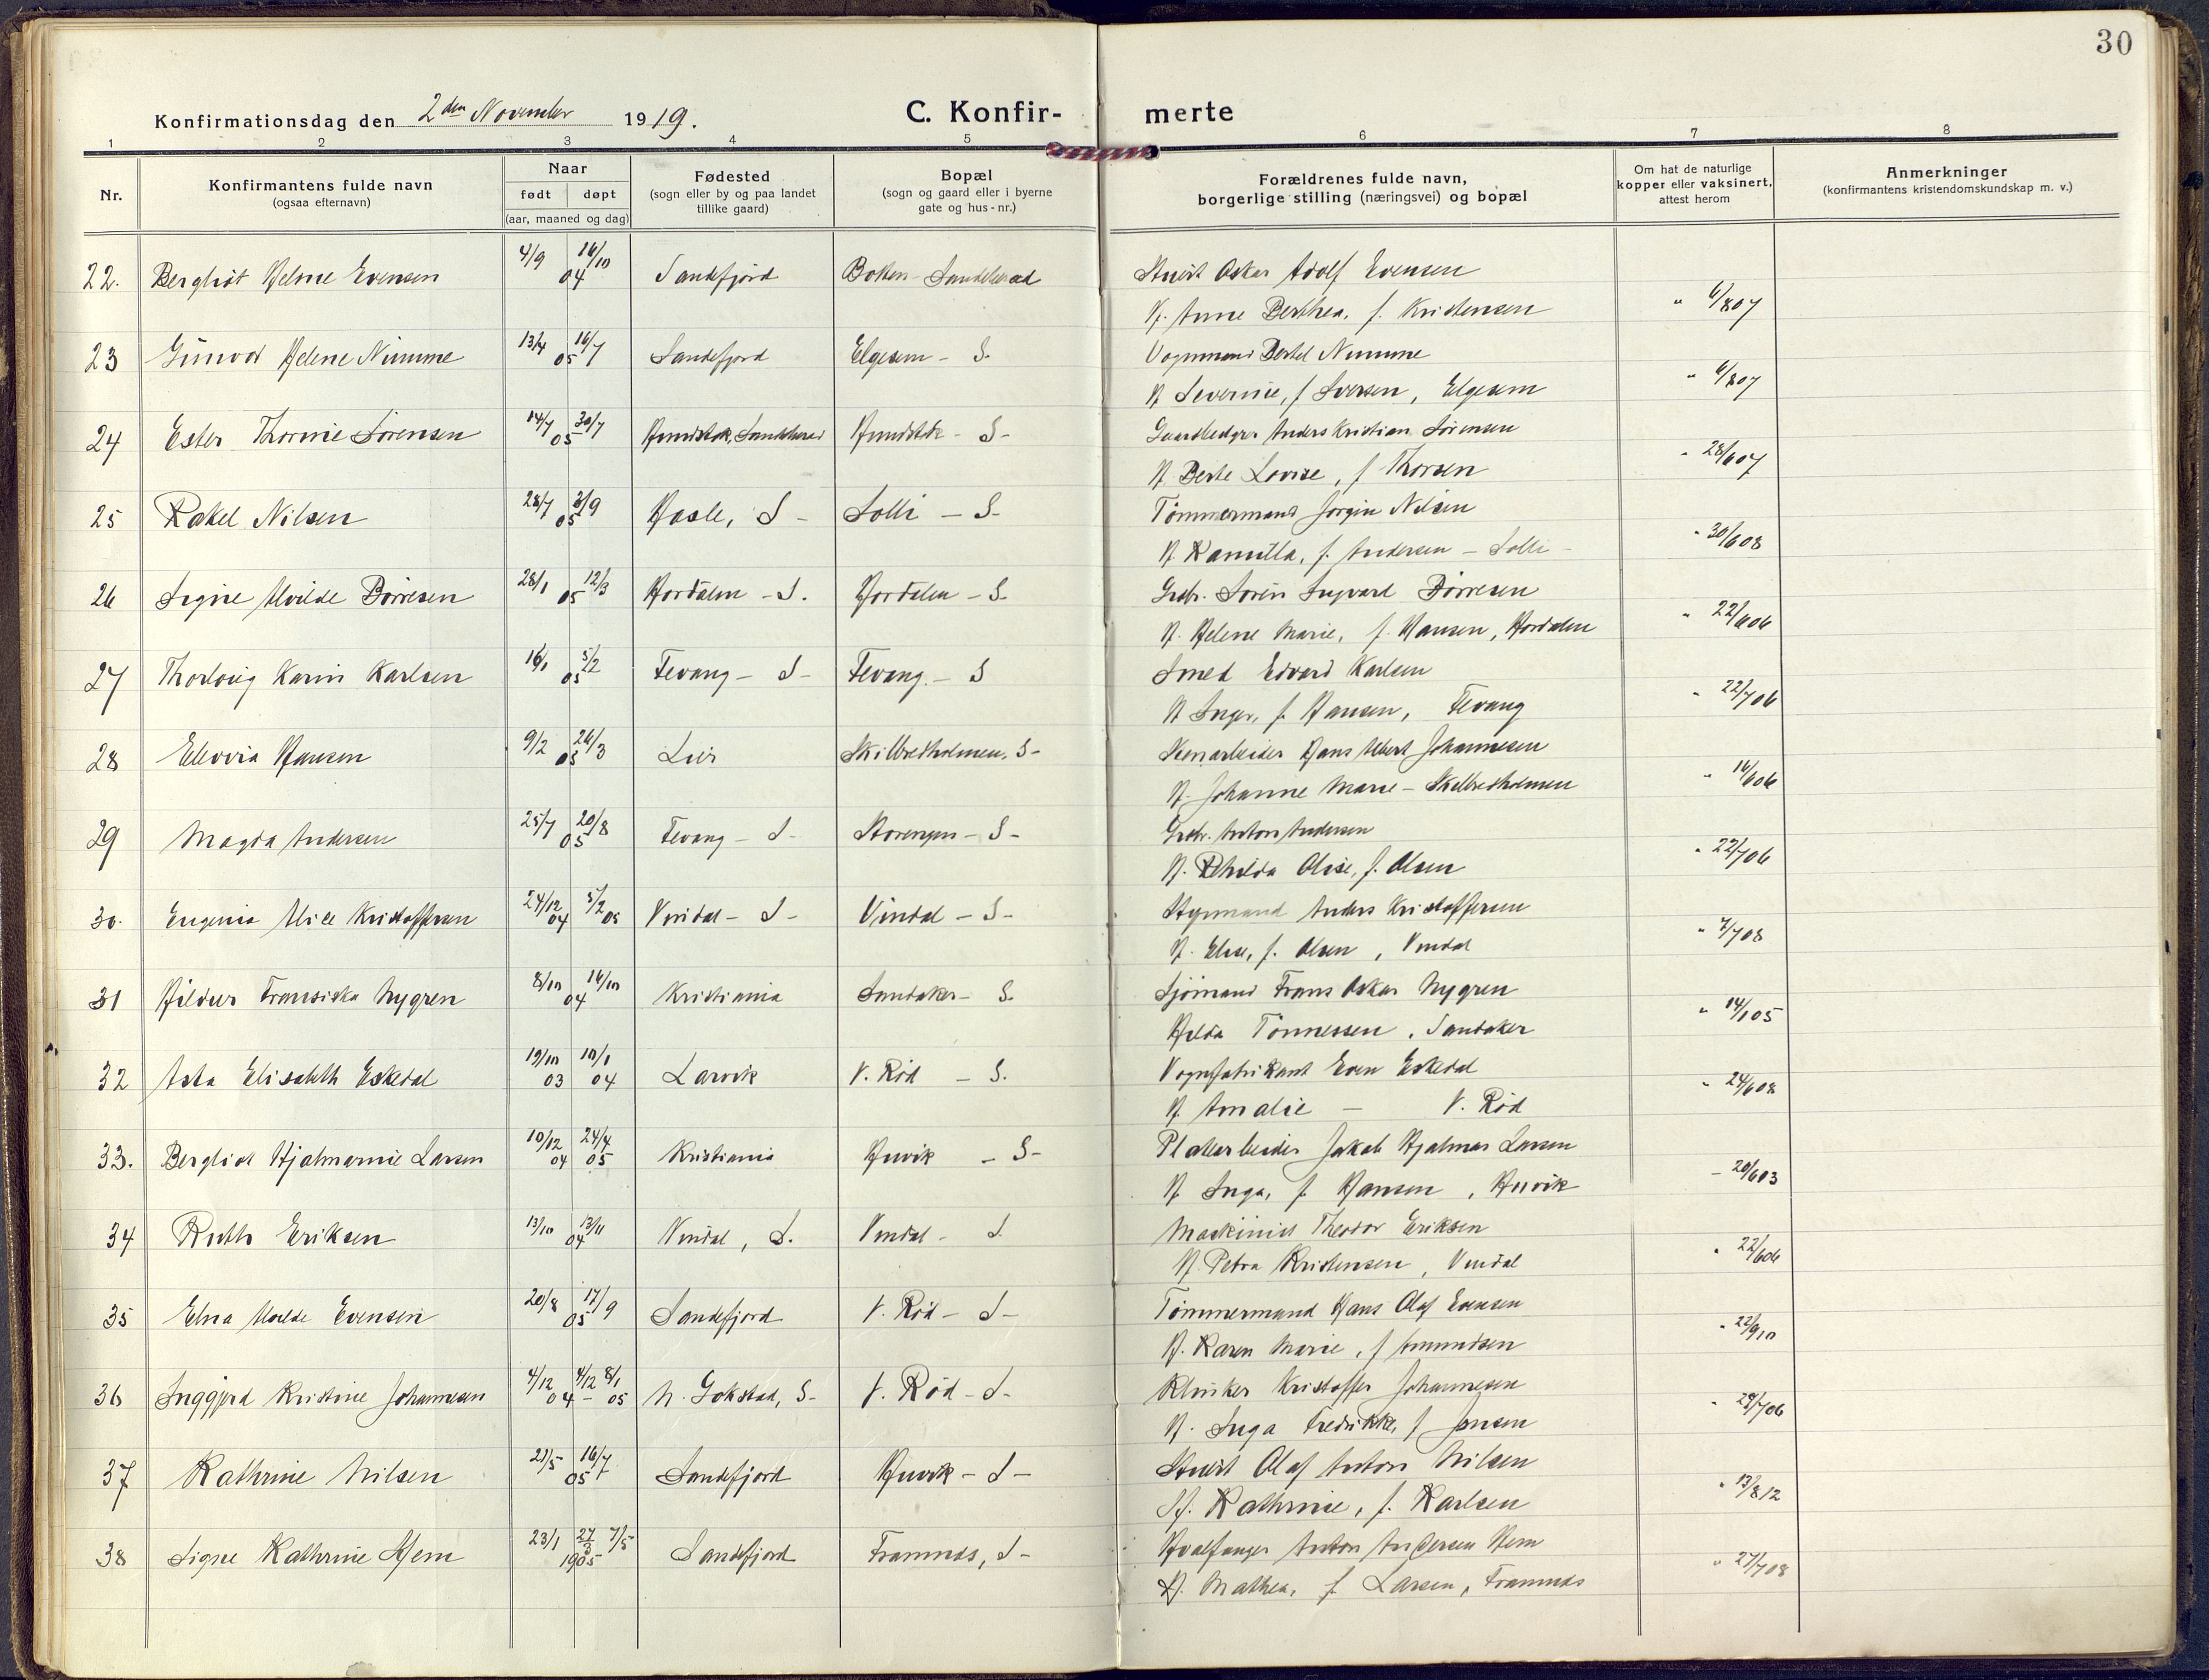 30
Konfirmationsdag den 2den November 1919.
C. Konfir- merte
1 2 3 4 5 6 7 8
Nr.
Konfirmantens fulde navn
(ogsaa efternavn)
Naar
født døpt
(aar, maaned og dag)
Fødested
(sogn eller by og paa landet
tillike gaard)
Bopæl
(sogn og gaard eller i byerne
gate og hus-nr.)
Forældrenes fulde navn,
borgerlige stilling (næringsvei) og bopæl
Om hat de naturlige
kopper eller vaksinert,
attest herom
Anmerkninger
(konfirmantens kristendomskundskap m. v.)
22. Bergliot Helene Evensen 4/9 16/10 04 Sandefjord Sandeherad Stuert Oskar Adolf Evensen
H. Anne Berthea, f. Kristensen " 6/8 07
23 Gunvor Helene Nimme 13/4 16/7 05 Sandefjord Elgesem - S. Vognmand Bertel Nimme
H Severine, f Iversen, Elgesem " 6/8 07
24 Ester Thorine Sørensen 14/7 30/7 05 Hundstok, Sandeherad Hundstok - S- Anders Kristian Sørensen
H Berte Lovise, f Thorsen " 28/6 07
25 Rakel Nilsen 28/7 3/9 05 Hasle, S - Solli - S- Tømmermand Jørgin Nilsen
H Kamilla, f. Andersen - Solli - " 30/6 08
26 Signe Alvilde Børresen 28/1 12/3 05 Hordalen - S. Hordalen - S- Grdbr. Søren Ingvard Børresen
H. Helene Marie, f. Hansen, Hordalen " 22/6 06
27 Thorlvig Karin Karlsen 16/1 5/2 05 Fevang - S- Fevang - S Smed Edvard Karlsen
H Inger, f. Hansen, Fevang " 22/7 06
28 Hansen 9/2 26/3 05 Lier Skilbredholmen, S- Stenarbeider Hans Albert Johannesen
H. Johanne Marie - Skilbredholmen " 16/6 06
29 Magda Andersen 25/7 20/8 05 Fevang - S- Storengen - S- Grdbr. Anton Andersen
H. Olise, f. Olsen " 22/7 06
30. Eugenia Alice Kristoffersen 24/12 04 5/2 05 Vindal - S- Vindal - S- Styrmand Anders Kristoffersen
H. Elise, f. Olsen, Vindal " 7/7 08
31 Hildur Fransiska Nygren 8/10 16/10 04 Kristiania Sandaker - S. Sjømand Frans Oskar Nygren
Hilda Tønnessen, Sandaker " 14/1 05
32 Asta Elisabeth Eskedal 19/10 03 10/1 04 Larvik V. Rød - S. Vognfabrikant Even Eskedal
H Amalie - V. Rød " 24/6 08
33. Bergliot Hjalmarine Larsen 10/12 04 24/4 05 Kristiania Huvik - S- Platearbeider Jakob Hjalmar Larsen
H Inga, f. Hansen, Huvik - 20/6 03
34 Ruth Eriksen 13/10 13/11 04 Vindal, S. Vindal - S Maskinist Theodor Eriksen
H. Petra Kristensen, Vindal " 22/6 06
35 Elna Alvilde Evensen 20/8 17/9 05 Sandefjord V. Rød - S- Tømmermand Hans Olaf Evensen
H. Karen Marie, f Amundsen " 22/9 10
36 Inggjerd Kristine Johannesen 4/12 04 4/12 - 8/1 05 N. Gokstad, S- V. Rød - S- Klinker Kristoffer Johannesen
H. Inga Fredrikke, f Jensen " 28/7 06
37 Kathrine Nilsen 21/5 16/7 05 Sandefjord Huvik - S- Stuert Olaf Anton Nilsen
H. Kathrine, f. Karlsen " 13/8 12
38 Signe Kathrine Hem 23/1 27/3 7/5 1905 Sandefjord Framnæs, S- Hvalfanger Anton Andersen Hem
H. Mathea, f. Larsen, Framnæs " 27/7 08